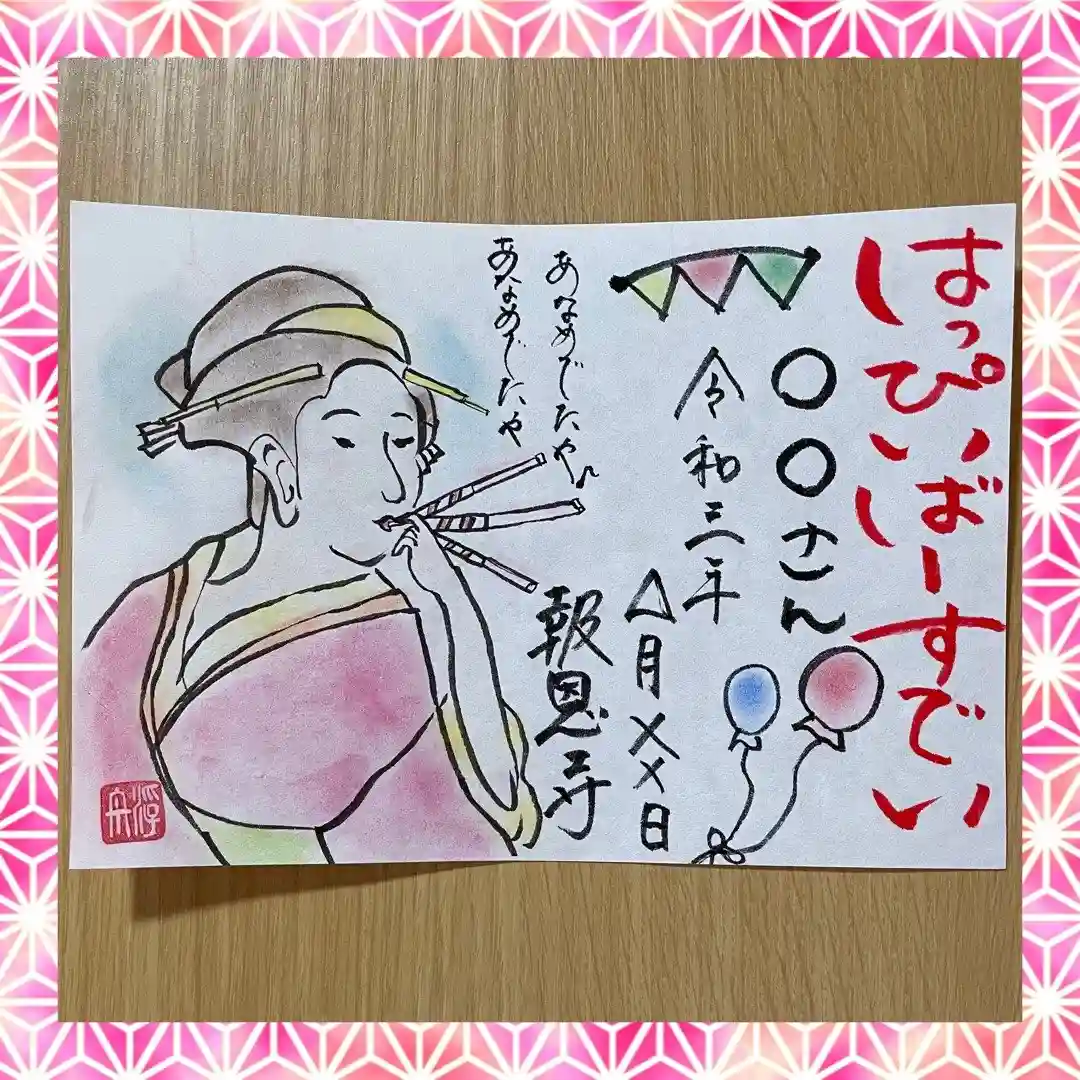 はっぴいばーすでい
〇〇さん
令和三年
△月××日
あなめでたや
あなめでたや
報恩寺
浮舟